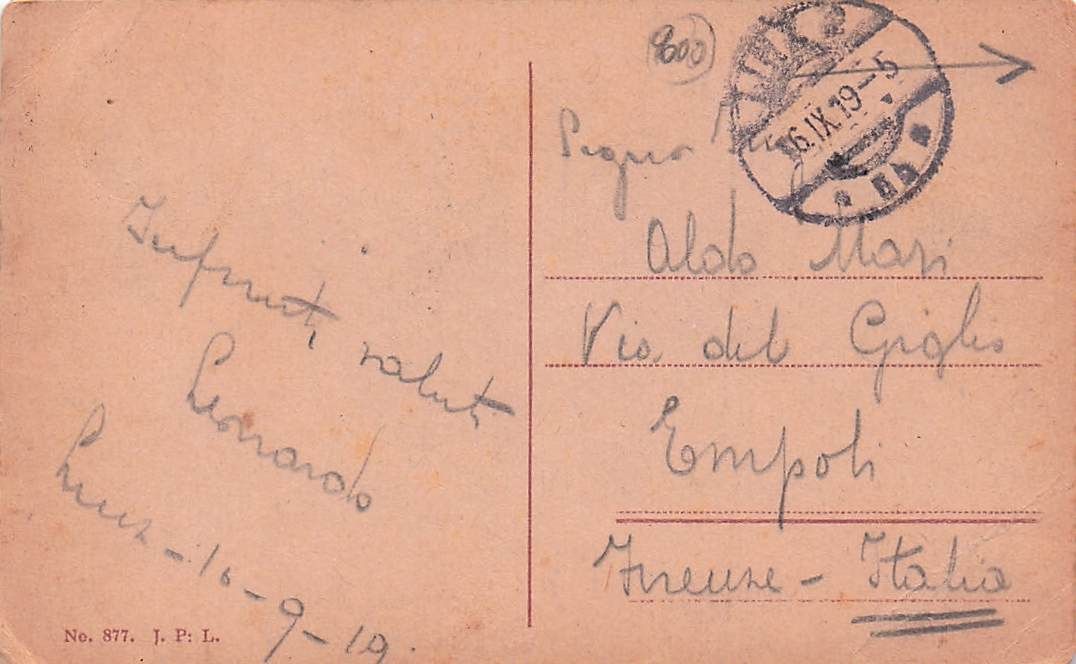 Infiniti saluti
Leonardo
Linz - 16 - 9 - 19.
No. 877. J. P: L.
800
LINZ 2
16.IX.19-5
Aldo Mari
Via del Giglio
Empoli
Firenze - Italia